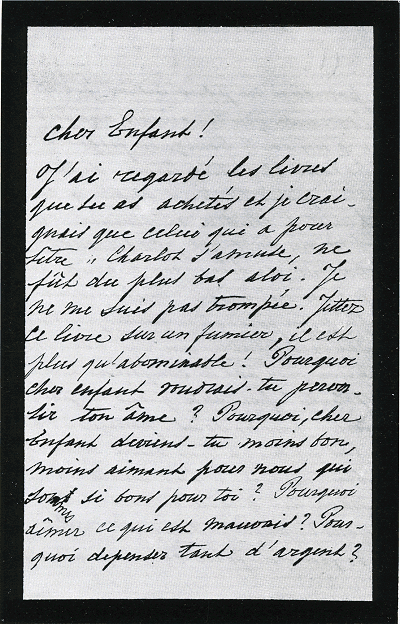 Cher Enfant!
J'ai regardé les livres
que tu as achetés et je crai-
gnais que celui qui a pour
titre „ Charlot s'amuse, ne
fût du plus bas aloi. Je
ne me suis pas trompée. Jittez
ce livre sur un fumier, il est
plus qu'abominable! Pourquoi
cher enfant voudrais-tu perver-
tir ton âme? Pourquoi, cher
Enfant deviens-tu moins bon,
moins aimant pour nous qui
sommes si bons pour toi? Pourquoi
aimer ce qui est mauvais? Pour-
quoi depenser tant d'argent?